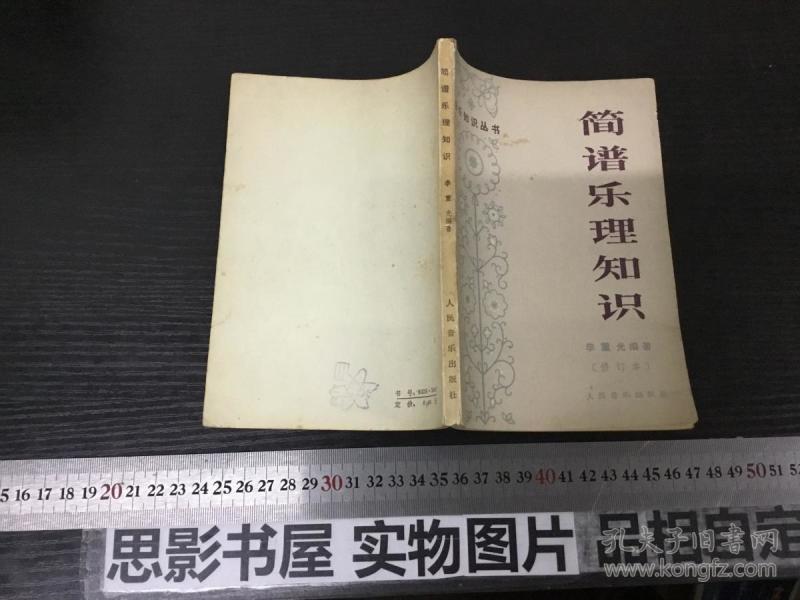 简谱乐理知识
李重光编著
人民音乐出版社
知识丛书
简谱乐理知识
李重光编著
（修订本）
人民音乐出版社
书号：
定价：
15 16 17 18 19 20 21 22 23 24 25 26 27 28 29 30 31 32 33 34 35 36 37 38 39 40 41 42 43 44 45 46 47 48 49 50 51
思影书屋 实物图片 品相自定
孔夫子旧书网
www.kongfz.com